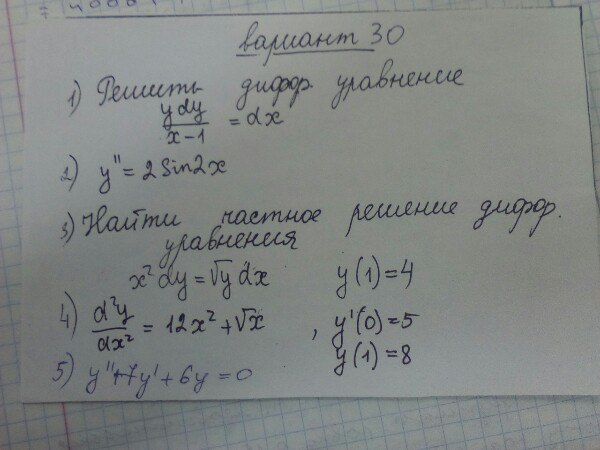 вариант 30
1) Решить дифф. уравнение
y dy / x-1 = dx
2) y'' = 2 Sin2x
3) Найти частное решение дифф.
уравнения
x² dy = √y dx y(1)=4
4) d²y / dx² = 12x² + √x , y'(0)=5
y(1)=8
5) y''+7y'+6y=0